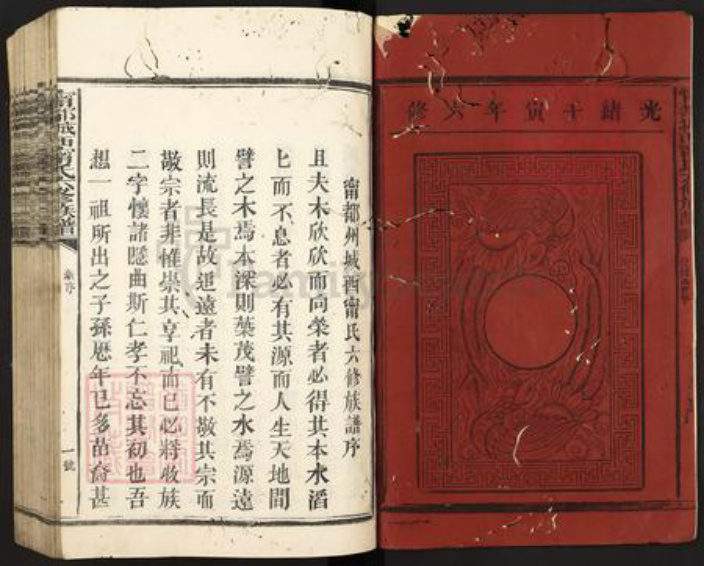 光緒壬寅年六修
甯都州城西甯氏六修族譜序
且夫木欣欣而向榮者必得其本水滔
匕而不息者必有其源而人生天地間
譬之木焉本深則葉茂譬之水焉源遠
則流長是故追遠者未有不敬其宗而
敬宗者非惟崇其享祀而已必將收族
二字懷諸隱曲斯仁孝不忘其初也吾
想一祖所出之子孫厯年已多苗裔甚
甯都城西甯氏六修族譜
新序
一號